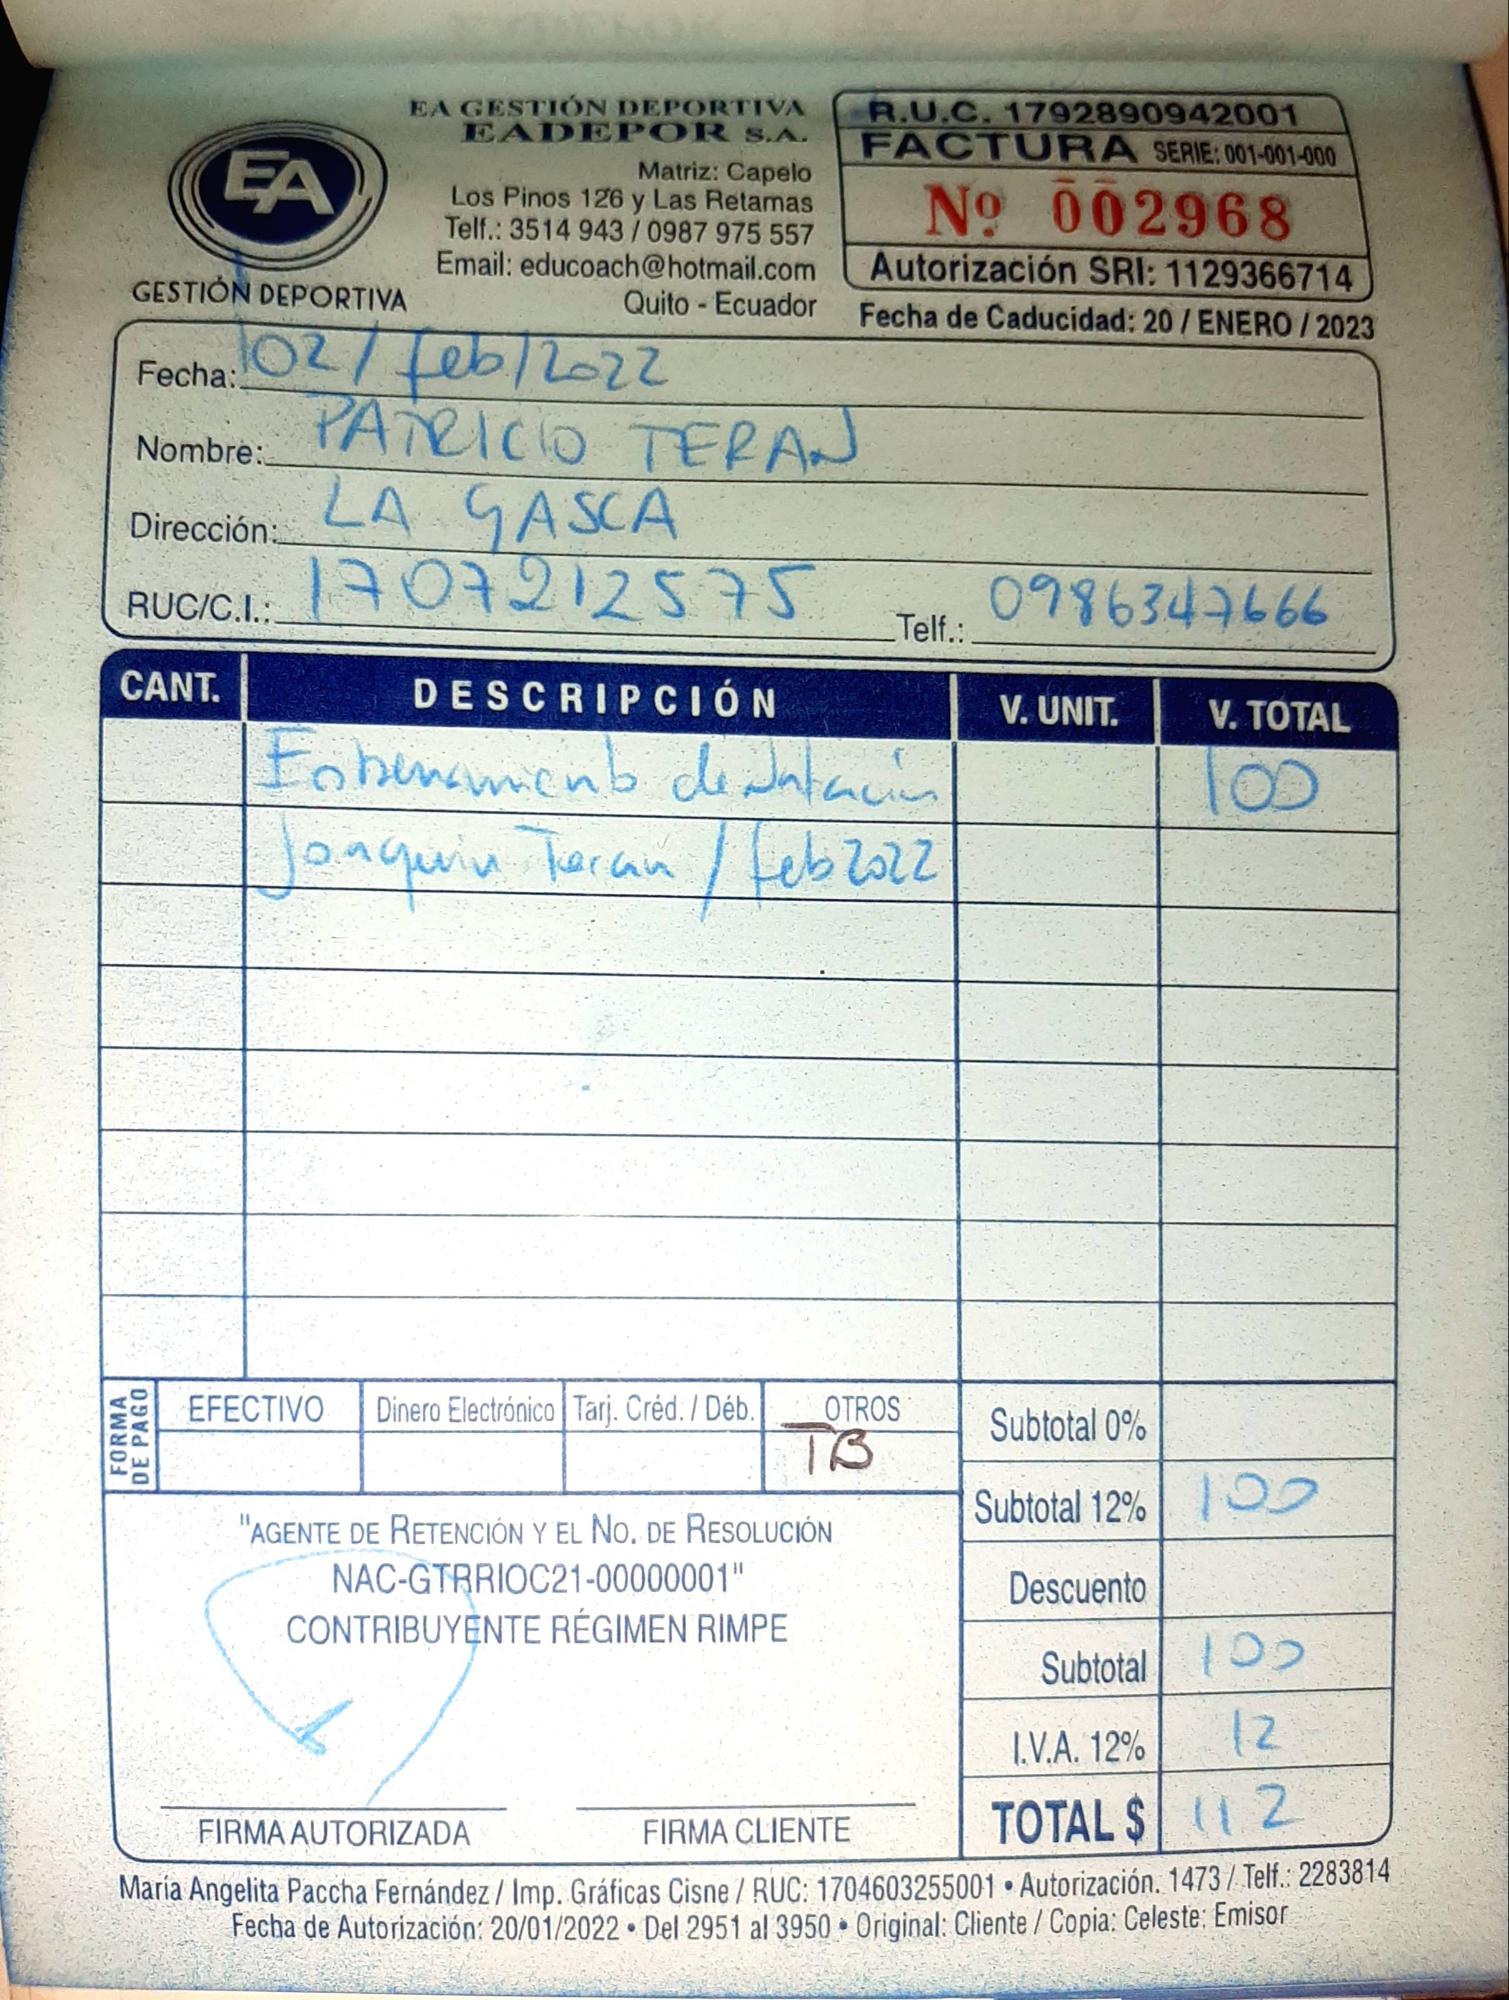 EA GESTIÓN DEPORTIVA
EADEPOR S.A.
Matriz: Capelo
Los Pinos 126 y Las Retamas
Telf.: 3514 943 / 0987 975 557
Email: educoach@hotmail.com
Quito - Ecuador
EA
GESTIÓN DEPORTIVA
R.U.C. 1792890942001
FACTURA SERIE: 001-001-000
Nº 002968
Autorización SRI: 1129366714
Fecha de Caducidad: 20 / ENERO / 2023
Fecha: 02/feb/2022
Nombre: PATRICIO TERAN
Dirección: LA GASCA
RUC/C.I.: 1707212575 Telf.: 0986347666
CANT. DESCRIPCIÓN V. UNIT. V. TOTAL
Entrenamiento de Natación 100
Joaquin Teran / feb 2022
FORMA DE PAGO
EFECTIVO Dinero Electrónico Tarj. Créd. / Déb. OTROS
TB
Subtotal 0%
Subtotal 12% 100
Descuento
Subtotal 100
I.V.A. 12% 12
TOTAL $ 112
"AGENTE DE RETENCIÓN Y EL NO. DE RESOLUCIÓN
NAC-GTRRIOC21-00000001"
CONTRIBUYENTE RÉGIMEN RIMPE
FIRMA AUTORIZADA FIRMA CLIENTE
María Angelita Paccha Fernández / Imp. Gráficas Cisne / RUC: 1704603255001 • Autorización. 1473 / Telf.: 2283814
Fecha de Autorización: 20/01/2022 • Del 2951 al 3950 • Original: Cliente / Copia: Celeste: Emisor